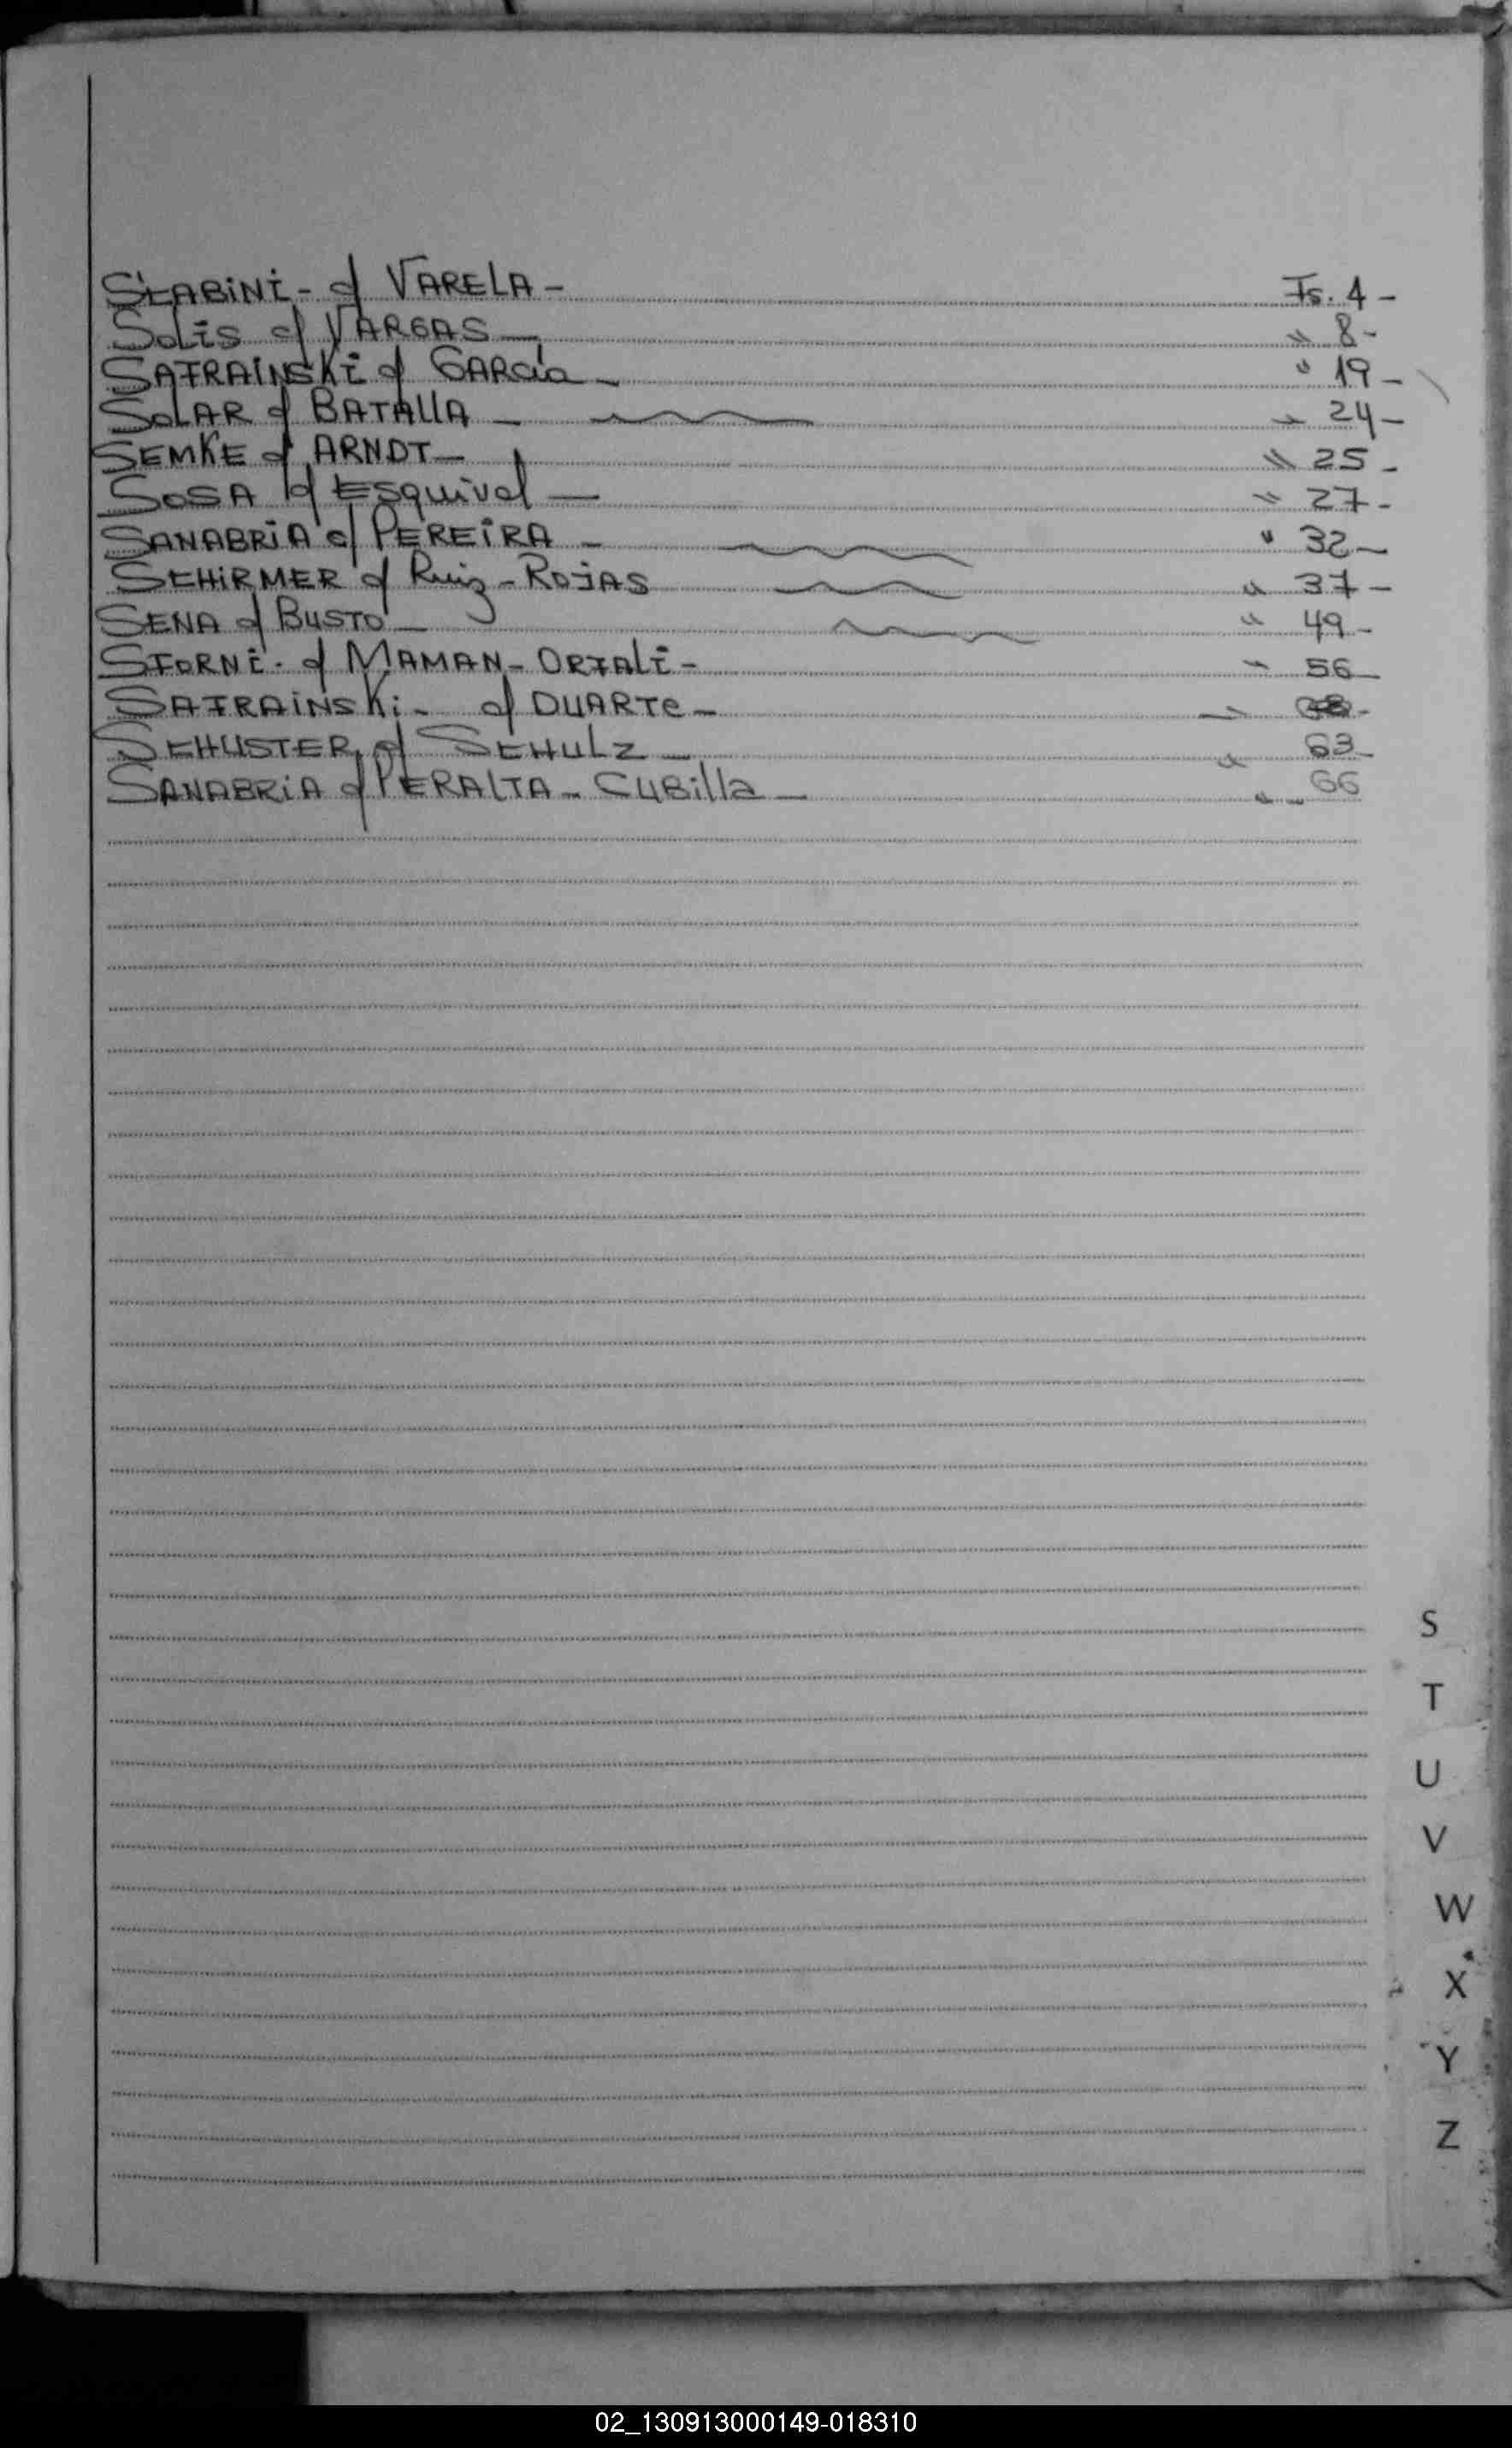 SCABINI - c/ VARELA - Fs. 4 -
SOLIS c/ VARGAS — " 8 -
SAFRAINSKI c/ GARCIA - " 19 -
SOLAR c/ BATALLA - " 24 -
SEMKE c/ ARNDT - " 25 -
SOSA c/ ESquivel — " 27 -
SANABRIA c/ PEREIRA - " 32 -
SCHIRMER c/ Ruiz - ROJAS " 37 -
SENA c/ BUSTO - " 49 -
STORNI - c/ MAMAN - ORTALI - " 56
SAFRAINSKI - c/ DUARTE - "
SCHUSTER c/ SCHULZ - " 63 -
SANABRIA c/ PERALTA - CUBIlla - " 66
S
T
U
V
W
X
Y
Z
02_130913000149-018310